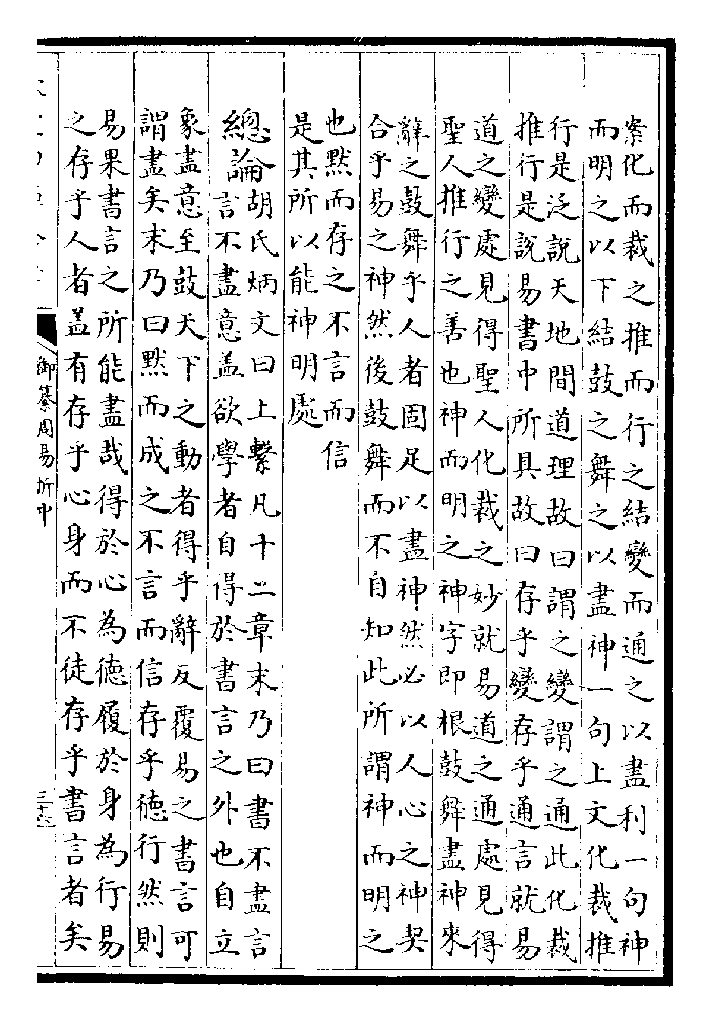 案化而裁之推而行之結變而通之以盡利一句神
而明之以下結鼓之舞之以盡神一句上文化裁推
行是泛說天地間道理故曰謂之變謂之通此化裁
推行是說易書中所具故曰存乎變存乎通言就易
道之變處見得聖人化裁之妙就易道之通處見得
聖人推行之善也神而明之神字即根鼓舞盡神來
辭之鼓舞乎人者固足以盡神然必以人心之神契
合乎易之神然後鼓舞而不自知此所謂神而明之
也默而存之不言而信
是其所以能神明處
總論胡氏炳文曰上繫凡十二章末乃曰書不盡言
言不盡意盖欲學者自得於書言之外也自立
象盡意至鼓天下之動者得乎辭反覆易之書言可
謂盡矣末乃曰默而成之不言而信存乎徳行然則
易果書言之所能盡哉得於心為德履於身為行易
之存乎人者盖有存乎心身而不徒存乎書言者矣
御纂周易折中